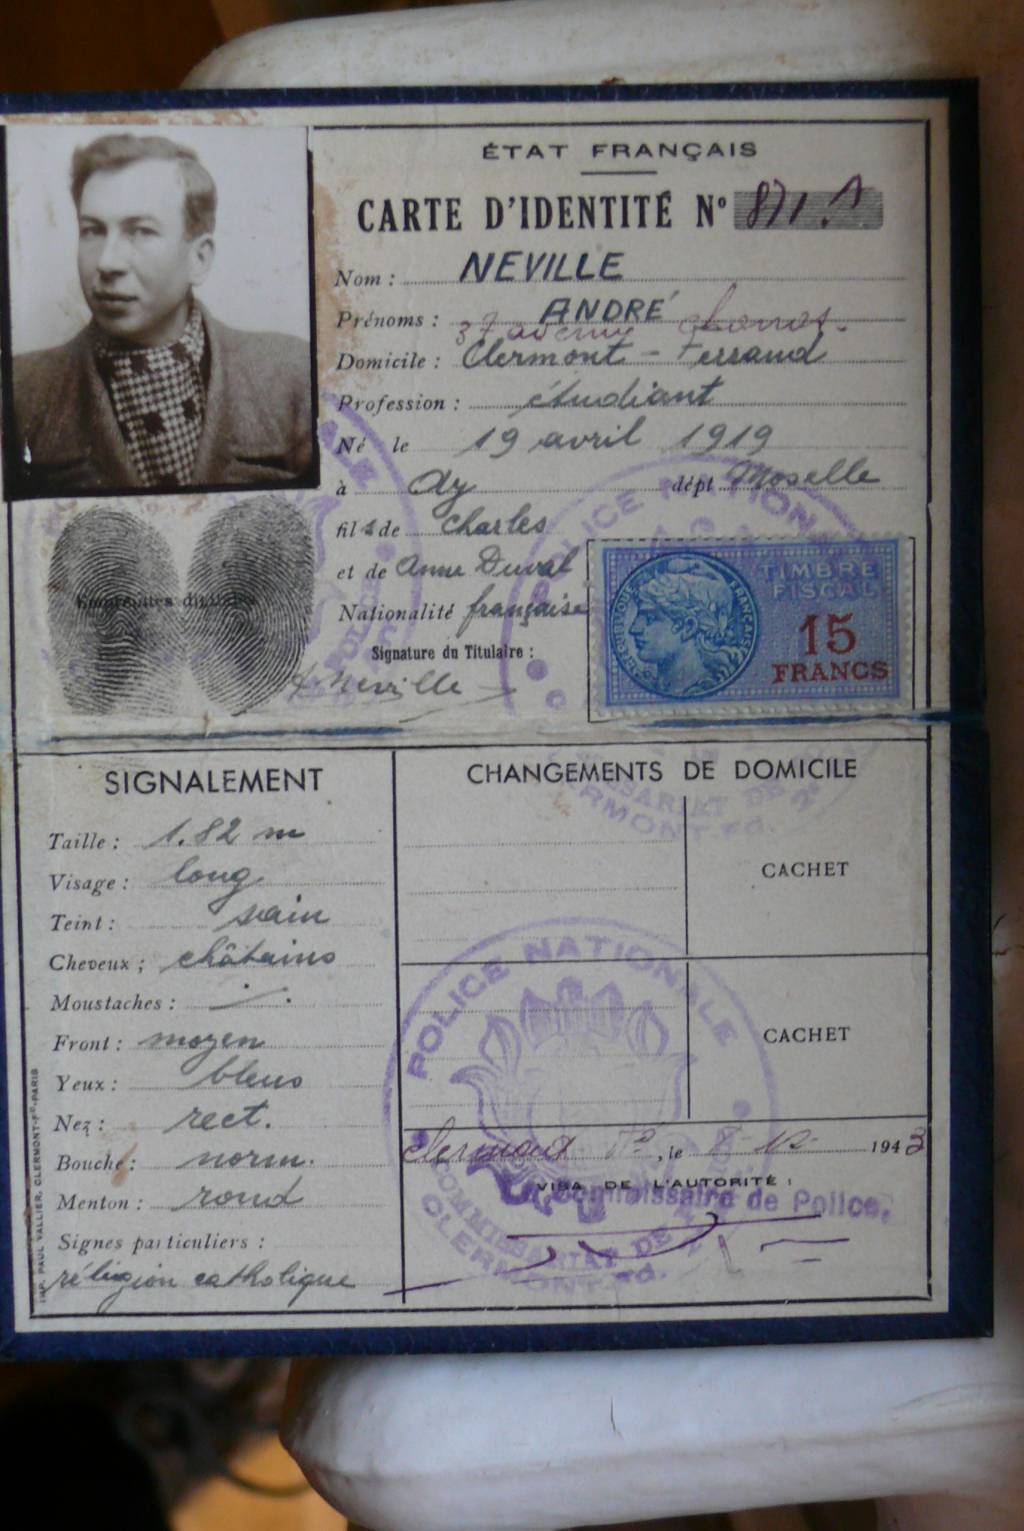 ÉTAT FRANÇAIS
CARTE D'IDENTITÉ Nº 871
Nom : NEVILLE
Prénoms : ANDRÉ
37 avenue
Domicile : Clermont-Ferrand
Profession : étudiant
Né le 19 avril 1919
à Ay dépt Moselle
fils de Charles
et de Anne Duval
Nationalité française
Signature du Titulaire :
Neville
Empreintes digitales
POLICE NATIONALE
TIMBRE
FISCAL
15
FRANCS
SIGNALEMENT
Taille : 1.82 m
Visage : long
Teint : sain
Cheveux : châtains
Moustaches :
Front : moyen
Yeux : bleus
Nez : rect.
Bouche : norm.
Menton : rond
Signes particuliers :
réligion catholique
IMP. PAUL VALLIER, CLERMONT-Fd-PARIS
CHANGEMENTS DE DOMICILE
CACHET
CACHET
POLICE NATIONALE
COMMISSARIAT DE
CLERMONT-Fd.
Clermont Fd, le 8-12- 1943
VISA DE L'AUTORITÉ :
Commissaire de Police.